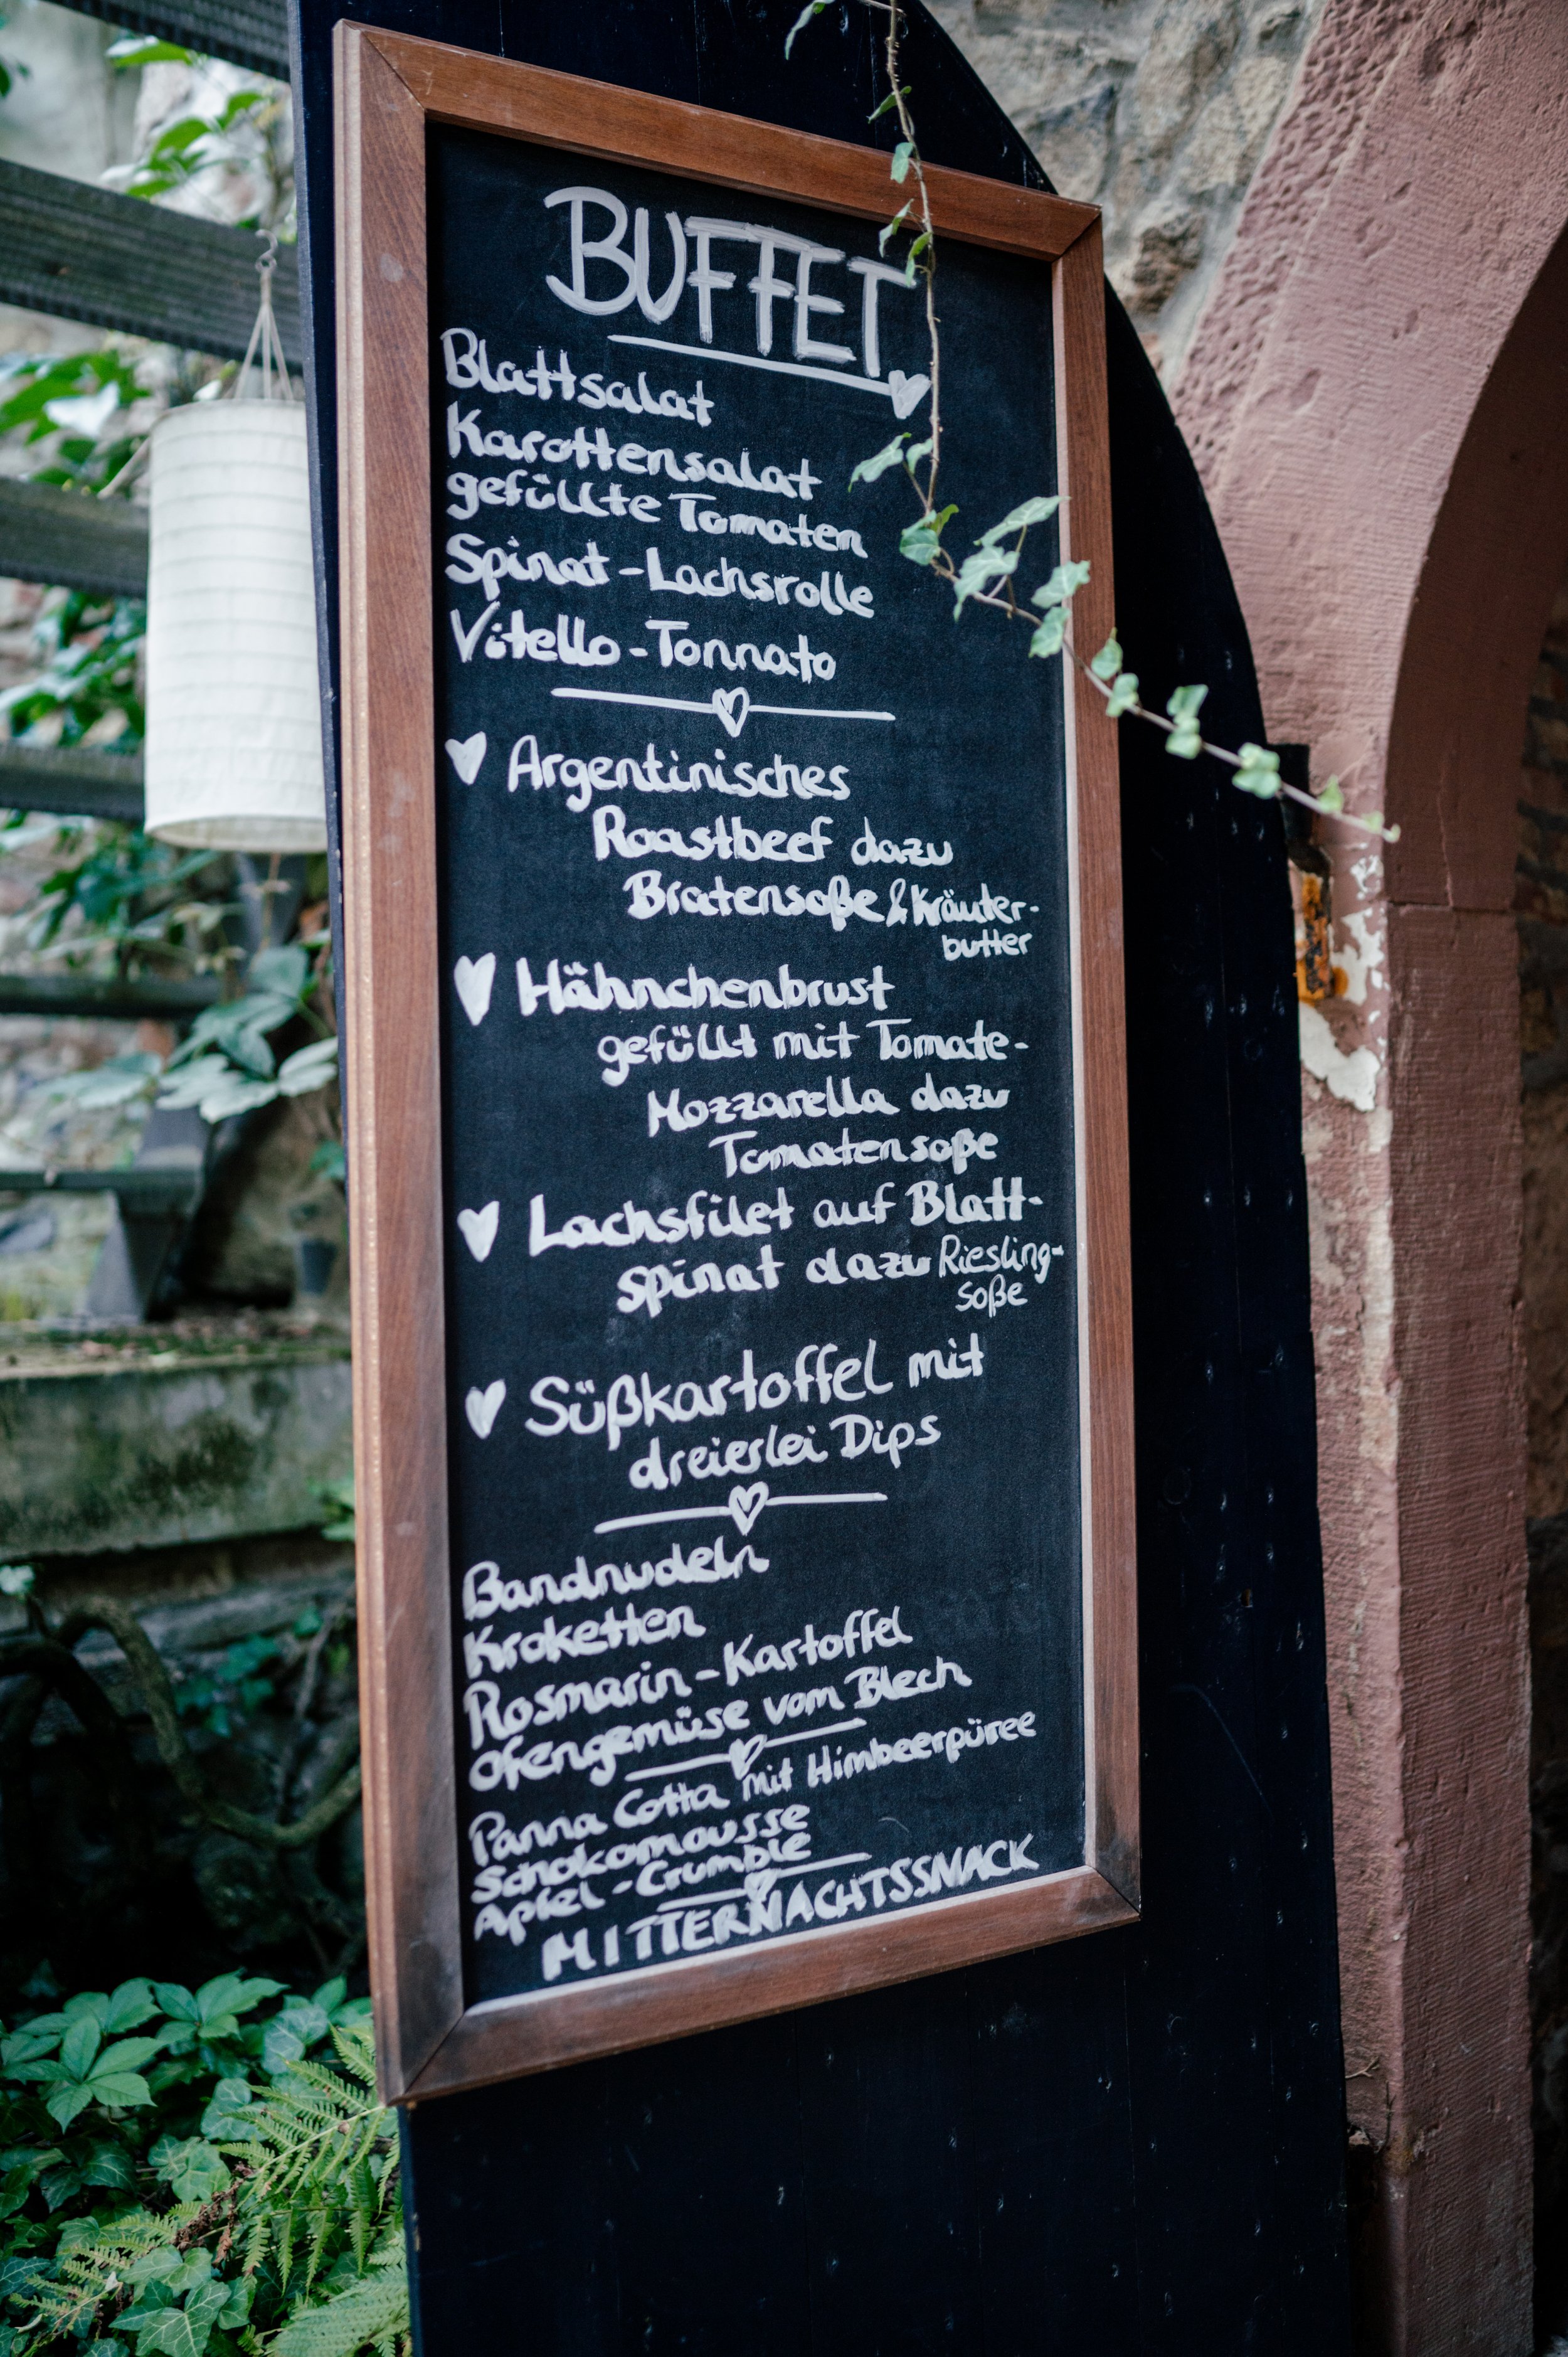 BUFFET
Blattsalat
Karottensalat
gefüllte Tomaten
Spinat-Lachsrolle
Vitello-Tonnato
Argentinisches
Roastbeef dazu
Bratensoße & Kräuter-
butter
Hähnchenbrust
gefüllt mit Tomate-
Mozzarella dazu
Tomatensoße
Lachsfilet auf Blatt-
spinat dazu Riesling-
soße
Süßkartoffel mit
dreierlei Dips
Bandnudeln
Kroketten
Rosmarin-Kartoffel
Ofengemüse vom Blech
Panna Cotta mit Himbeerpüree
Schokomousse
Apfel-Crumble
MITTERNACHTSSNACK